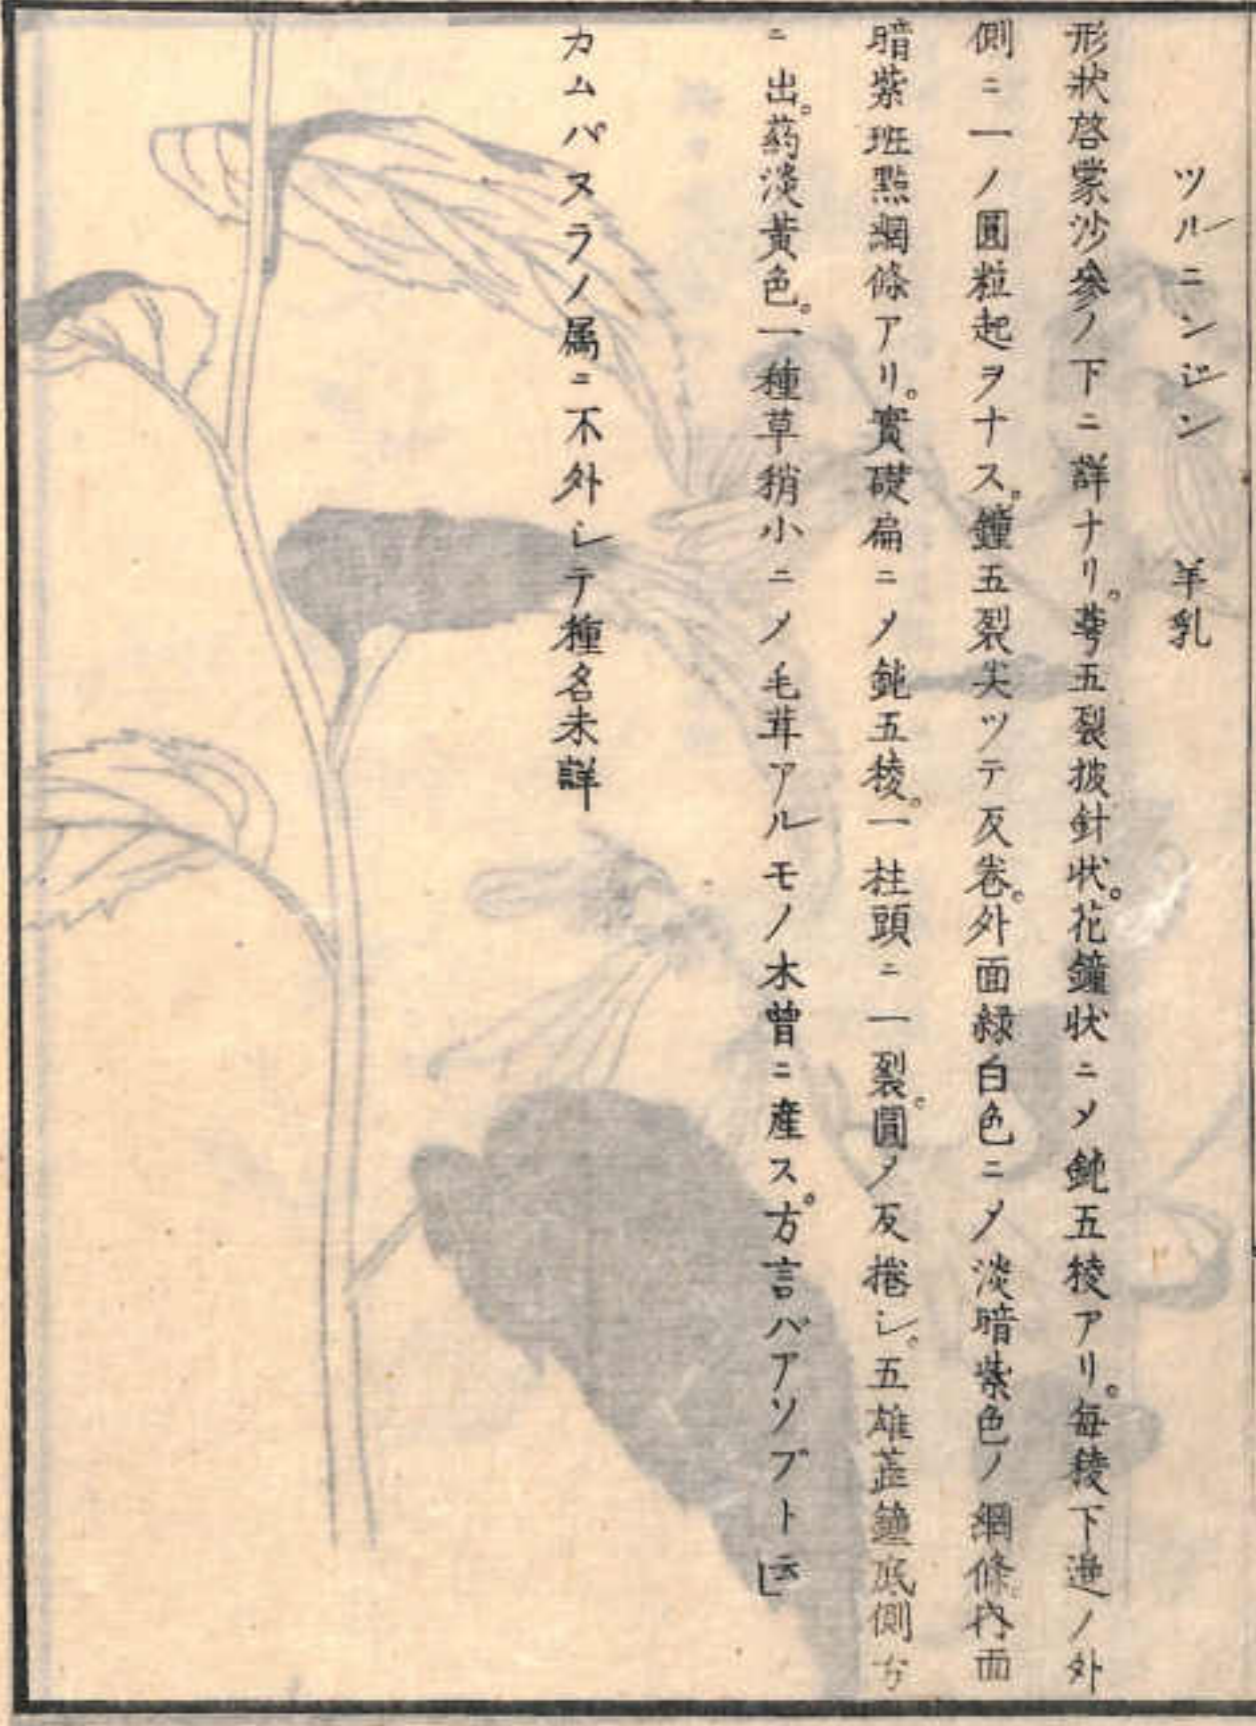 ツルニンジン 羊乳
形狀啓蒙沙參ノ下ニ詳ナリ。萼五裂披針状。花鐘状ニメ鈍五稜アリ。毎稜下邊ノ外
側ニ一ノ圓粒起ヲナス。鐘五裂尖ツテ反卷。外面緑白色ニメ淡暗紫色ノ網條。內面
暗紫斑點網條アリ。實礎扁ニメ鈍五稜。一柱頭ニ一裂。圓メ反捲シ。五雄蕋鐘底側方
ニ出。葯淡黃色。一種草稍小ニメ毛茸アルモノ木曽ニ産ス。方言バアソブト云」
カムパスラノ属ニ不外シテ種名未詳